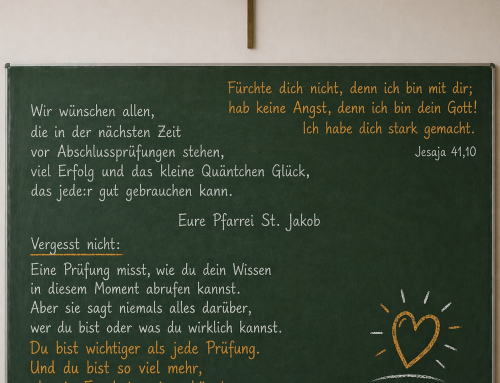 Fürchte dich nicht, denn ich bin mit dir;
hab keine Angst, denn ich bin dein Gott!
Ich habe dich stark gemacht.
Jesaja 41,10
Wir wünschen allen,
die in der nächsten Zeit
vor Abschlussprüfungen stehen,
viel Erfolg und das kleine Quäntchen Glück,
das jede:r gut gebrauchen kann.
Eure Pfarrei St. Jakob
Vergesst nicht:
Eine Prüfung misst, wie du dein Wissen
in diesem Moment abrufen kannst.
Aber sie sagt niemals alles darüber,
wer du bist oder was du wirklich kannst.
Du bist wichtiger als jede Prüfung.
Und du bist so viel mehr,